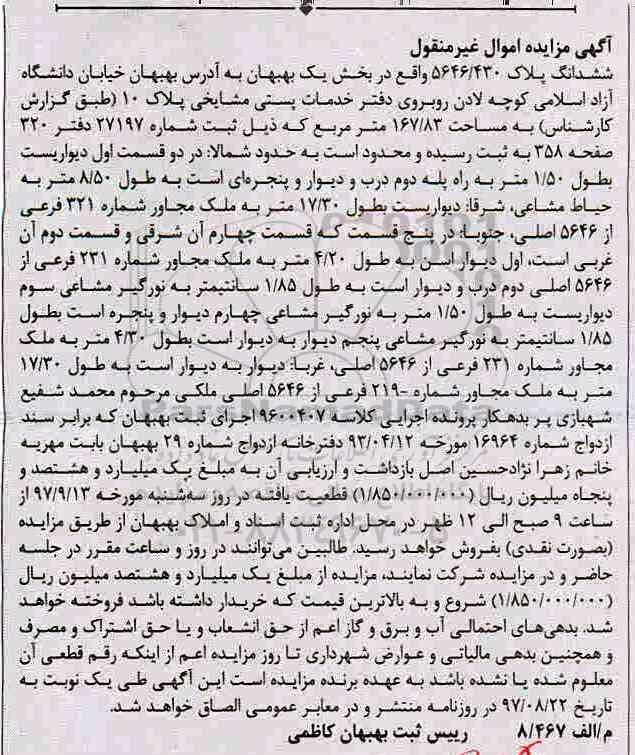 آگهی مزایده اموال غیرمنقول
ششدانگ پلاک ۵۶۴۶/۴۳۰ واقع در بخش یک بهبهان به آدرس بهبهان خیابان دانشگاه
آزاد اسلامی کوچه لادن روبروی دفتر خدمات پستی مشایخی پلاک ۱۰ (طبق گزارش
کارشناس) به مساحت ۱۶۷/۸۳ متر مربع که ذیل ثبت شماره ۲۷۱۹۷ دفتر ۳۲۰
صفحه ۳۵۸ به ثبت رسیده و محدود است به حدود شمالا: در دو قسمت اول دیواریست
بطول ۱/۵۰ متر به راه پله دوم درب و دیوار و پنجره‌ای است به طول ۸/۵۰ متر به
حیاط مشاعی، شرقا: دیواریست بطول ۱۷/۳۰ متر به ملک مجاور شماره ۳۲۱ فرعی
از ۵۶۴۶ اصلی، جنوبا: در پنج قسمت که قسمت چهارم آن شرقی و قسمت دوم آن
غربی است، اول دیوار این به طول ۴/۲۰ متر به ملک مجاور شماره ۲۳۱ فرعی از
۵۶۴۶ اصلی دوم درب و دیوار است به طول ۱/۸۵ سانتیمتر به نورگیر مشاعی سوم
دیواریست به طول ۱/۵۰ متر به نورگیر مشاعی چهارم دیوار و پنجره است بطول
۱/۸۵ سانتیمتر به نورگیر مشاعی پنجم دیوار به دیوار است بطول ۴/۳۰ متر به ملک
مجاور شماره ۲۳۱ فرعی از ۵۶۴۶ اصلی، غربا: دیوار به دیوار است به طول ۱۷/۳۰
متر به ملک مجاور شماره -۲۱۹ فرعی از ۵۶۴۶ اصلی ملکی مرحوم محمد شفیع
شهبازی پر بدهکار پرونده اجرایی کلاسه ۹۶۰۰۴۰۷ اجرای ثبت بهبهان که برابر سند
ازدواج شماره ۱۶۹۶۴ مورخه ۹۳/۰۴/۱۲ دفترخانه ازدواج شماره ۲۹ بهبهان بابت مهریه
خانم زهرا نژادحسین اصل بازداشت و ارزیابی آن به مبلغ یک میلیارد و هشتصد و
پنجاه میلیون ریال (۱/۸۵۰/۰۰۰/۰۰۰) قطعیت یافته در روز سه‌شنبه مورخه ۹۷/۹/۱۳ از
ساعت ۹ صبح الی ۱۲ ظهر در محل اداره ثبت اسناد و املاک بهبهان از طریق مزایده
(بصورت نقدی) بفروش خواهد رسید. طالبین می‌توانند در روز و ساعت مقرر در جلسه
حاضر و در مزایده شرکت نمایند، مزایده از مبلغ یک میلیارد و هشتصد میلیون ریال
(۱/۸۵۰/۰۰۰/۰۰۰) شروع و به بالاترین قیمت که خریدار داشته باشد فروخته خواهد
شد. بدهی‌های احتمالی آب و برق و گاز اعم از حق انشعاب و یا حق اشتراک و مصرف
و همچنین بدهی مالیاتی و عوارض شهرداری تا روز مزایده اعم از اینکه رقم قطعی آن
معلوم شده یا نشده باشد به عهده برنده مزایده است این آگهی طی یک نوبت به
تاریخ ۹۷/۰۸/۲۲ در روزنامه منتشر و در معابر عمومی الصاق خواهد شد.
م/الف ۸/۴۶۷ رییس ثبت بهبهان کاظمی